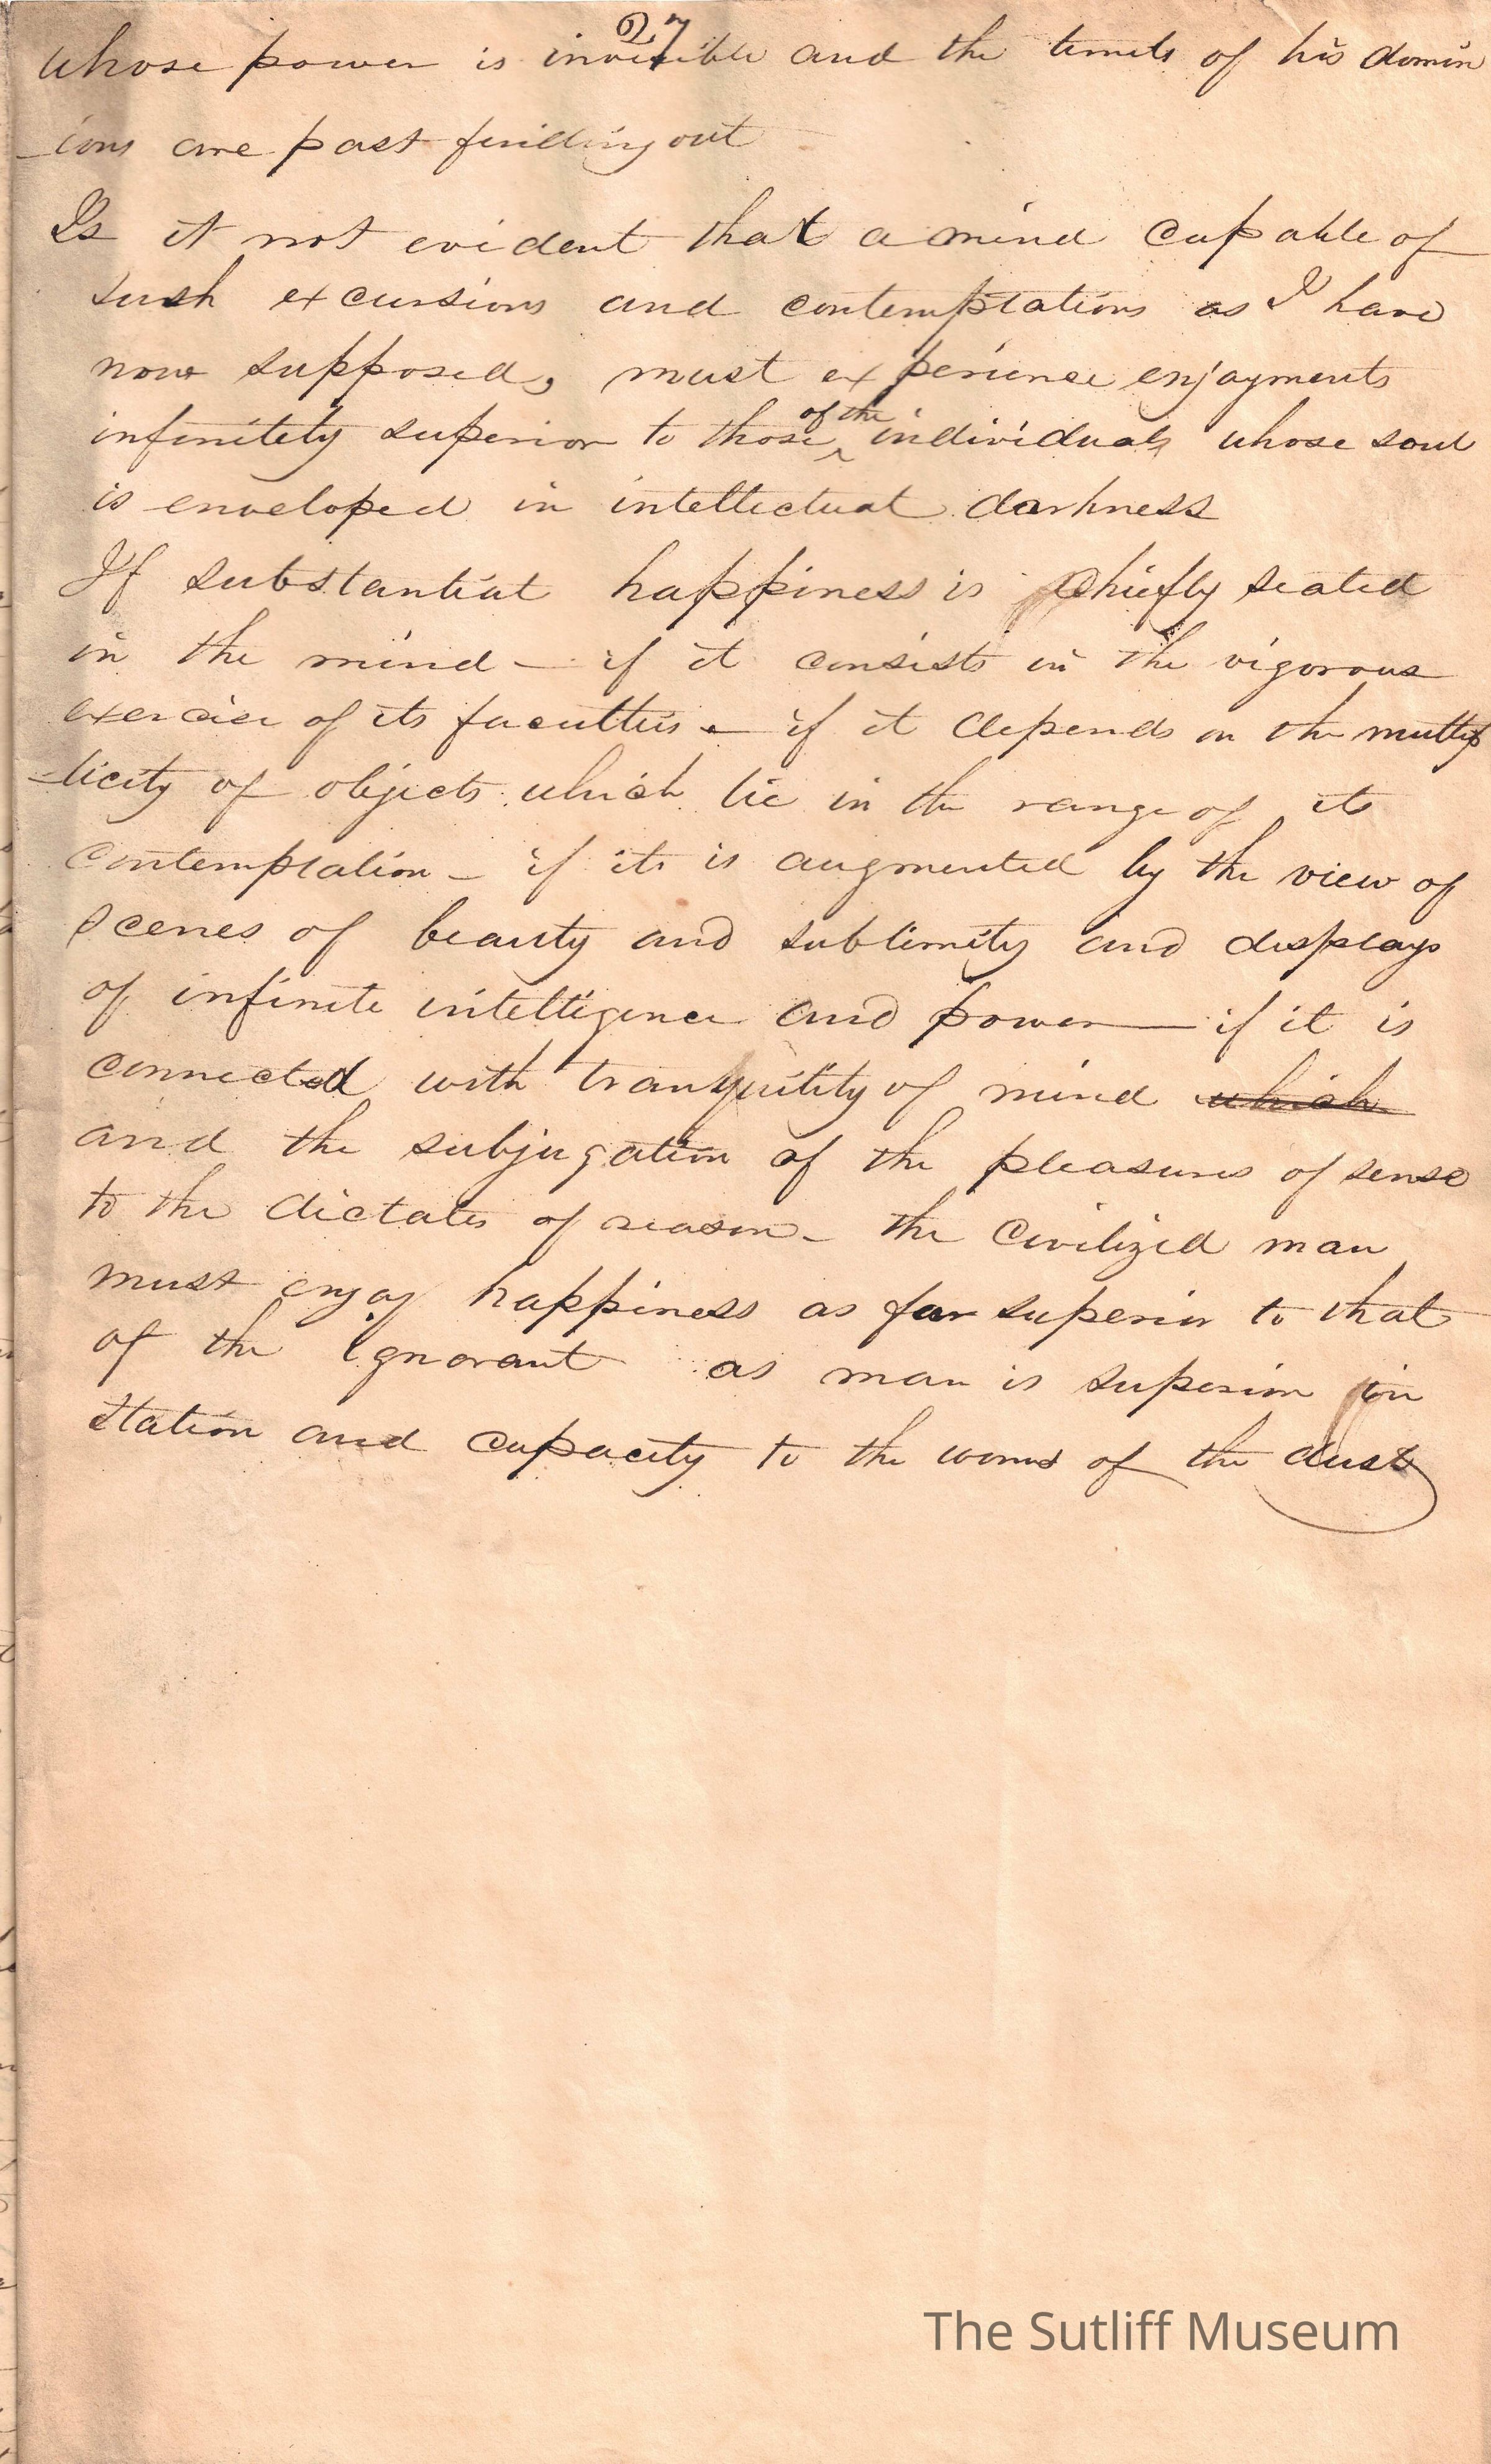 27
whose power is invisible and the limits of his domin
-ions are past finding out
Is it not evident that a mind capable of
such excursions and contemplations as I have
now supposed, must experience enjoyments
infinitely superior to those of the individuals whose soul
is enveloped in intellectual darkness
If substantial happiness is chiefly seated
in the mind - if it consists in the vigorous
exercise of its faculties - if it depends on the multip
-licity of objects which lie in the range of its
contemplation - if its is augmented by the view of
scenes of beauty and sublimity and displays
of infinite intelligence and power - if it is
connected with tranquility of mind which
and the subjugation of the pleasures of sense
to the dictates of reason - the Civilized man
must enjoy happiness as far superior to that
of the ignorant as man is superior in
station and capacity to the worms of the dust
The Sutliff Museum